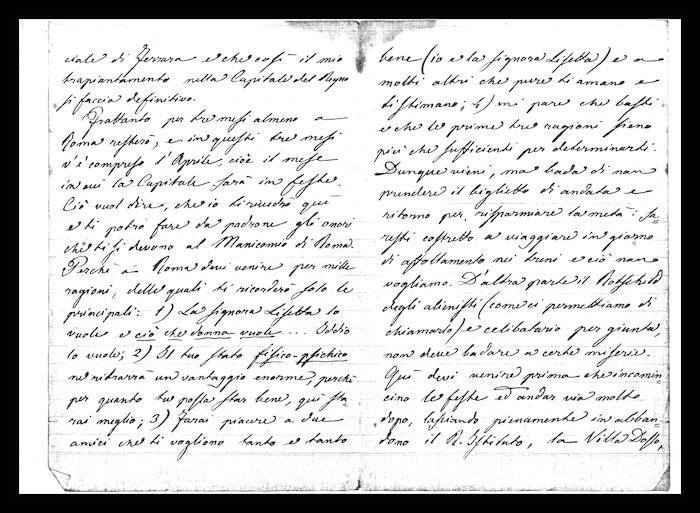 ciale di Ferrara e che così il mio
trapiantamento nella Capitale del Regno
si faccia definitivo.
Frattanto per tre mesi almeno a
Roma resterò, e in questi tre mesi
v'è compreso l'Aprile, cioè il mese
in cui la Capitale sarà in feste.
Ciò vuol dire, che io ti rivedrò quì
e ti potrò fare da padrone gli onori
che ti si devono al Manicomio di Roma.
Perchè a Roma devi venire per mille
ragioni, delle quali ti ricorderò solo le
principali: 1) La signora Lisetta lo
vuole e ciò che donna vuole.... Iddio
lo vuole; 2) Il tuo stato fisico-psichico
ne ridrarrà un vantaggio enorme, perchè
per quanto tu possa star bene, quì sta-
rai meglio; 3) Farai piacere a due
amici che ti vogliono tanto e tanto
bene (io e la signora Lisetta) e a
molti altri che pure ti amano e
ti stimano; 4) mi pare che basti
e che le prime tre ragioni sieno
più che sufficienti per determinarti.
Dunque vieni, ma bada di non
prendere il biglietto di andata e
ritorno per risparmiare la metà: sa-
resti costretto a viaggiare in giorno
di affollamento nei treni e ciò non
vogliamo. D'altra parte il Rotschild
degli alienisti (come ci permettiamo di
chiamarlo) e celibatario per giunta,
non deve badare a certe miserie.
Quì devi venire prima che incomin-
cino le feste ed andar via molto
dopo, lasciando pienamente in abban-
dono il R. Istituto, la Villa Dosso,